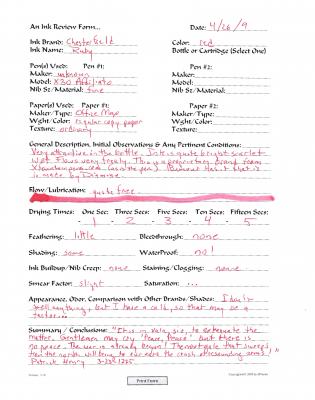 An Ink Review Form... Date: 4/26/9
Ink Brand: Chesterfield Color: red
Ink Name: Ruby Bottle or Cartridge (Select One)
Pen(s) Used: Pen #1: Pen #2:
Maker: unknown Maker:
Model: Model:
Nib Sz/Material: fine Nib Sz/Material:
Paper(s) Used: Paper #1: Paper #2:
Maker/Type: Office Max Maker/Type:
Wght/Color: regular copy paper Wght/Color:
Texture: ordinary Texture:
General Description, Initial Observations & Any Pertinent Conditions:
Very attractive in the bottle. Ink is quite bright scarlet
wet. Flows very freely. This is a proprietary brand from
is made by Diamine.
Flow/Lubrication: quite free
Drying Times: One Sec: Three Secs: Five Secs: Ten Secs: Fifteen Secs:
1 - 2 - 3 - 4 - 5
Feathering: little Bleedthrough: none
Shading: some WaterProof: no!
Ink Buildup/Nib Creep: none Staining/Clogging: none
Smear Factor: slight Saturation: ...
Appearance, Odor, Comparison with Other Brands/Shades: I don't
smell anything, but I have a cold, so that may be a
factor...
Summary / Conclusions: "It is in vain, sir, to extenuate the
matter. Gentlemen may cry 'Peace, Peace' but there is
no peace. The war is already begun! The next gale that sweeps
from the north will bring to our ears the clash of resounding arms"
Patrick Henry 3-23-1775
Print Form